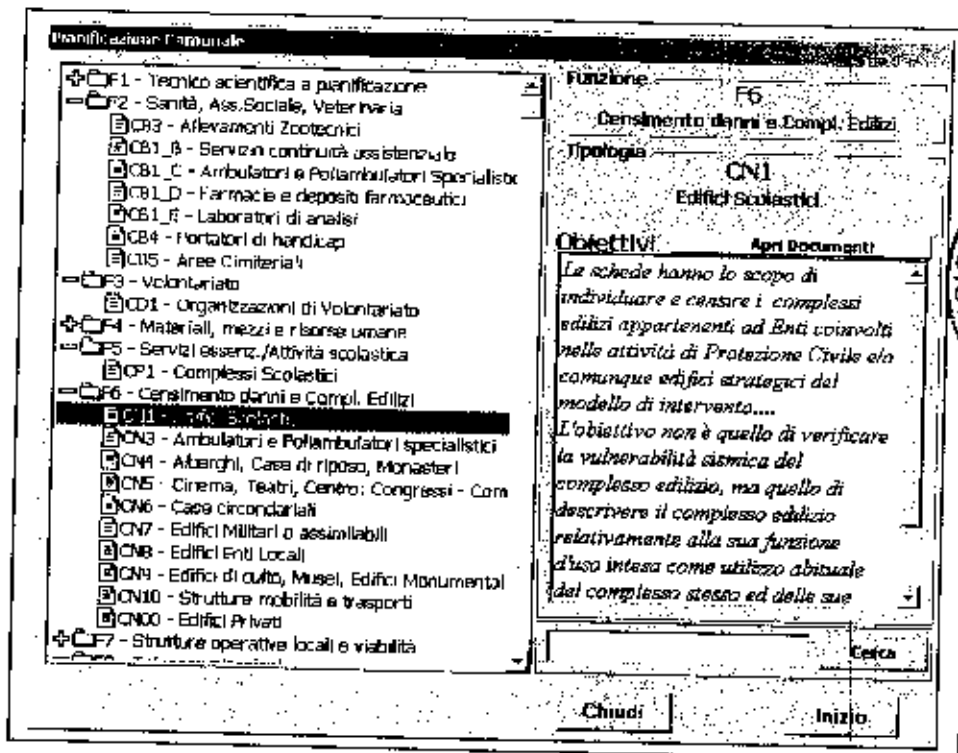 Pianificazione Comunale
F1 - Tecnico scientifica a pianificazione
F2 - Sanità, Ass.Sociale, Veterinaria
CB3 - Allevamenti Zootecnici
CB1_B - Servizio continuità assistenziale
CB1_C - Ambulatori e Poliambulatori Specialistic
CB1_D - Farmacie e deposito farmaceutici
CB1_E - Laboratori di analisi
CB4 - Portatori di handicap
CB5 - Aree Cimiteriali
F3 - Volontariato
CD1 - Organizzazioni di Volontariato
F4 - Materiali, mezzi e risorse umane
F5 - Servizi essenz./Attività scolastica
CP1 - Complessi Scolastici
F6 - Censimento danni e Compl. Edilizi
CN1 -
CN3 - Ambulatori e Poliambulatori specialistici
CN4 - Alberghi, Case di riposo, Monasteri
CN5 - Cinema, Teatri, Centro: Congressi - Com
CN6 - Case circondariali
CN7 - Edifici Militari o assimilabili
CN8 - Edifici Enti Locali
CN9 - Edifici di culto, Musei, Edifici Monumental
CN10 - Strutture mobilità e trasporti
CN00 - Edifici Privati
F7 - Strutture operative locali e viabilità
Funzione
F6
Censimento danni e Compl. Edilizi
Tipologia
CN1
Edifici Scolastici
Obiettivi
Apri Documenti
Le schede hanno lo scopo di
individuare e censire i complessi
edilizi appartenenti ad Enti coinvolti
nelle attività di Protezione Civile e/o
comunque edifici strategici del
modello di intervento....
L'obiettivo non è quello di verificare
la vulnerabilità sismica del
complesso edilizio, ma quello di
descrivere il complesso edilizio
relativamente alla sua funzione
d'uso intesa come utilizzo abituale
del complesso stesso ed delle sue
Cerca
Chiudi
Inizio